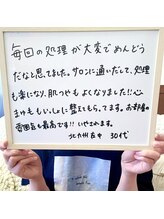 毎回の処理が大変でめんどう
だなと思ってました。サロンに通いだして、処理
も楽になり、肌つやもよくなりました!!心
まゆももいっしょに整えてもらってます。お部屋の
雰囲気も最高です!!いやされます。
北九州在中 30代